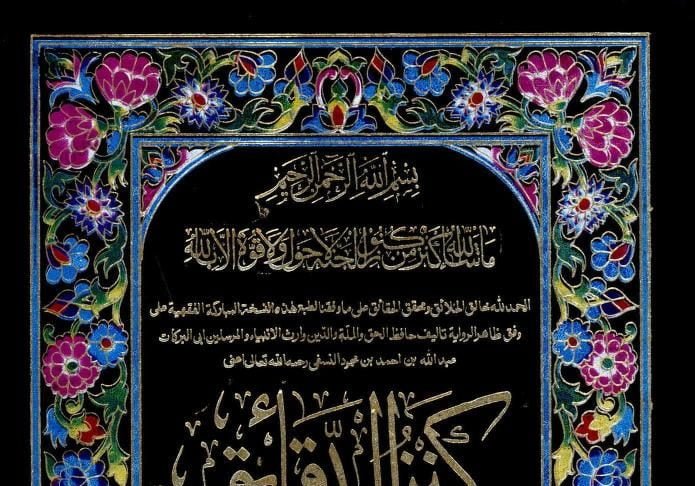 بسم الله الرحمن الرحيم
ما شاء الله كنز من كنوز الجنة لا حول ولا قوة الا بالله
الحمد لله خالق الخلائق ومحقق الحقائق على ما وفقنا لطبع هذه النسخة المباركة الفقهية على
وفق ظاهر الرواية تاليف حافظ الحق والملة والدين وارث الانبياء والمرسلين ابى البركات
عبد الله بن احمد بن محمود النسفى رحمه الله تعالى اعنى
كنز الدقائق